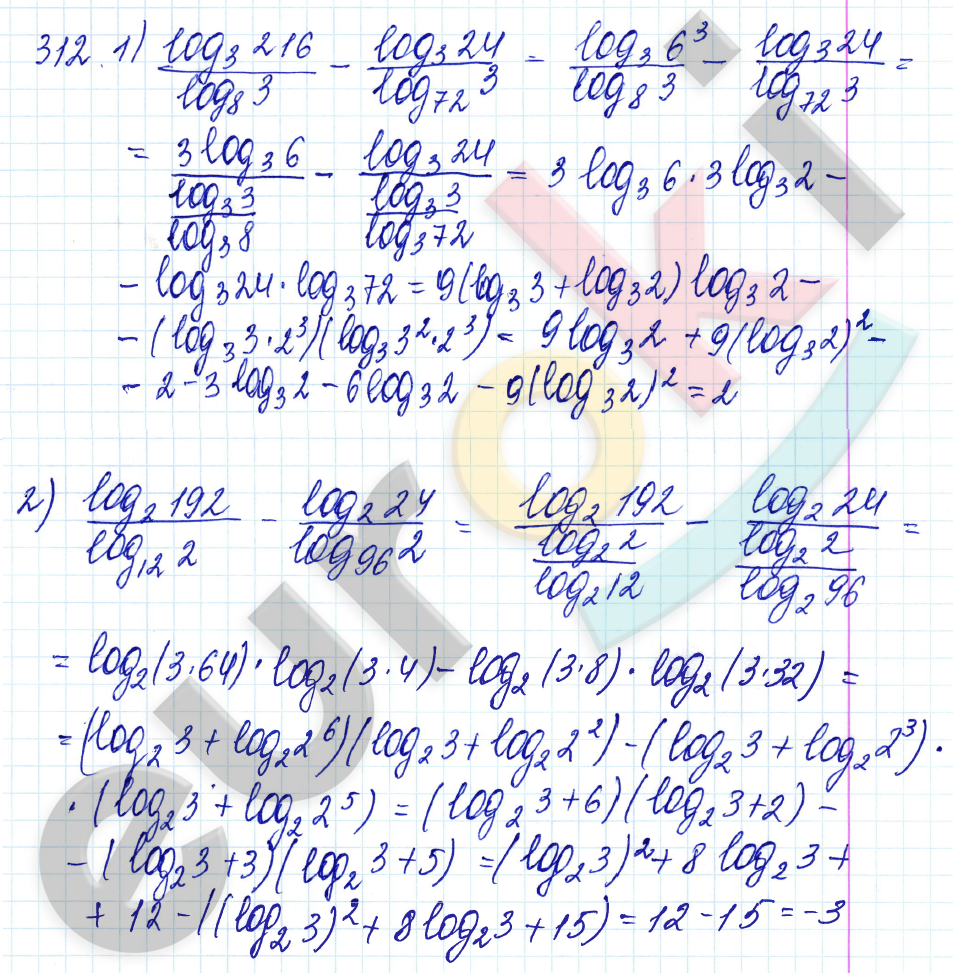 312. 1) log₃ 216 / log₈ 3 − log₃ 24 / log₇₂ 3 = log₃ 6³ / log₈ 3 − log₃ 24 / log₇₂ 3 =
= 3 log₃ 6 / (log₃ 3 / log₃ 8) − log₃ 24 / (log₃ 3 / log₃ 72) = 3 log₃ 6 · 3 log₃ 2 −
− log₃ 24 · log₃ 72 = 9(log₃ 3 + log₃ 2) log₃ 2 −
− (log₃ 3·2³)(log₃ 3²·2³) = 9 log₃ 2 + 9(log₃ 2)² −
− 2 − 3 log₃ 2 − 6 log₃ 2 − 9(log₃ 2)² = 2
2) log₂ 192 / log₁₂ 2 − log₂ 24 / log₉₆ 2 = log₂ 192 / (log₂ 2 / log₂ 12) − log₂ 24 / (log₂ 2 / log₂ 96) =
= log₂ (3·64) · log₂ (3·4) − log₂ (3·8) · log₂ (3·32) =
= (log₂ 3 + log₂ 2⁶)(log₂ 3 + log₂ 2²) − (log₂ 3 + log₂ 2³) ·
· (log₂ 3 + log₂ 2⁵) = (log₂ 3 + 6)(log₂ 3 + 2) −
− (log₂ 3 + 3)(log₂ 3 + 5) = (log₂ 3)² + 8 log₂ 3 +
+ 12 − ((log₂ 3)² + 8 log₂ 3 + 15) = 12 − 15 = −3
euroki